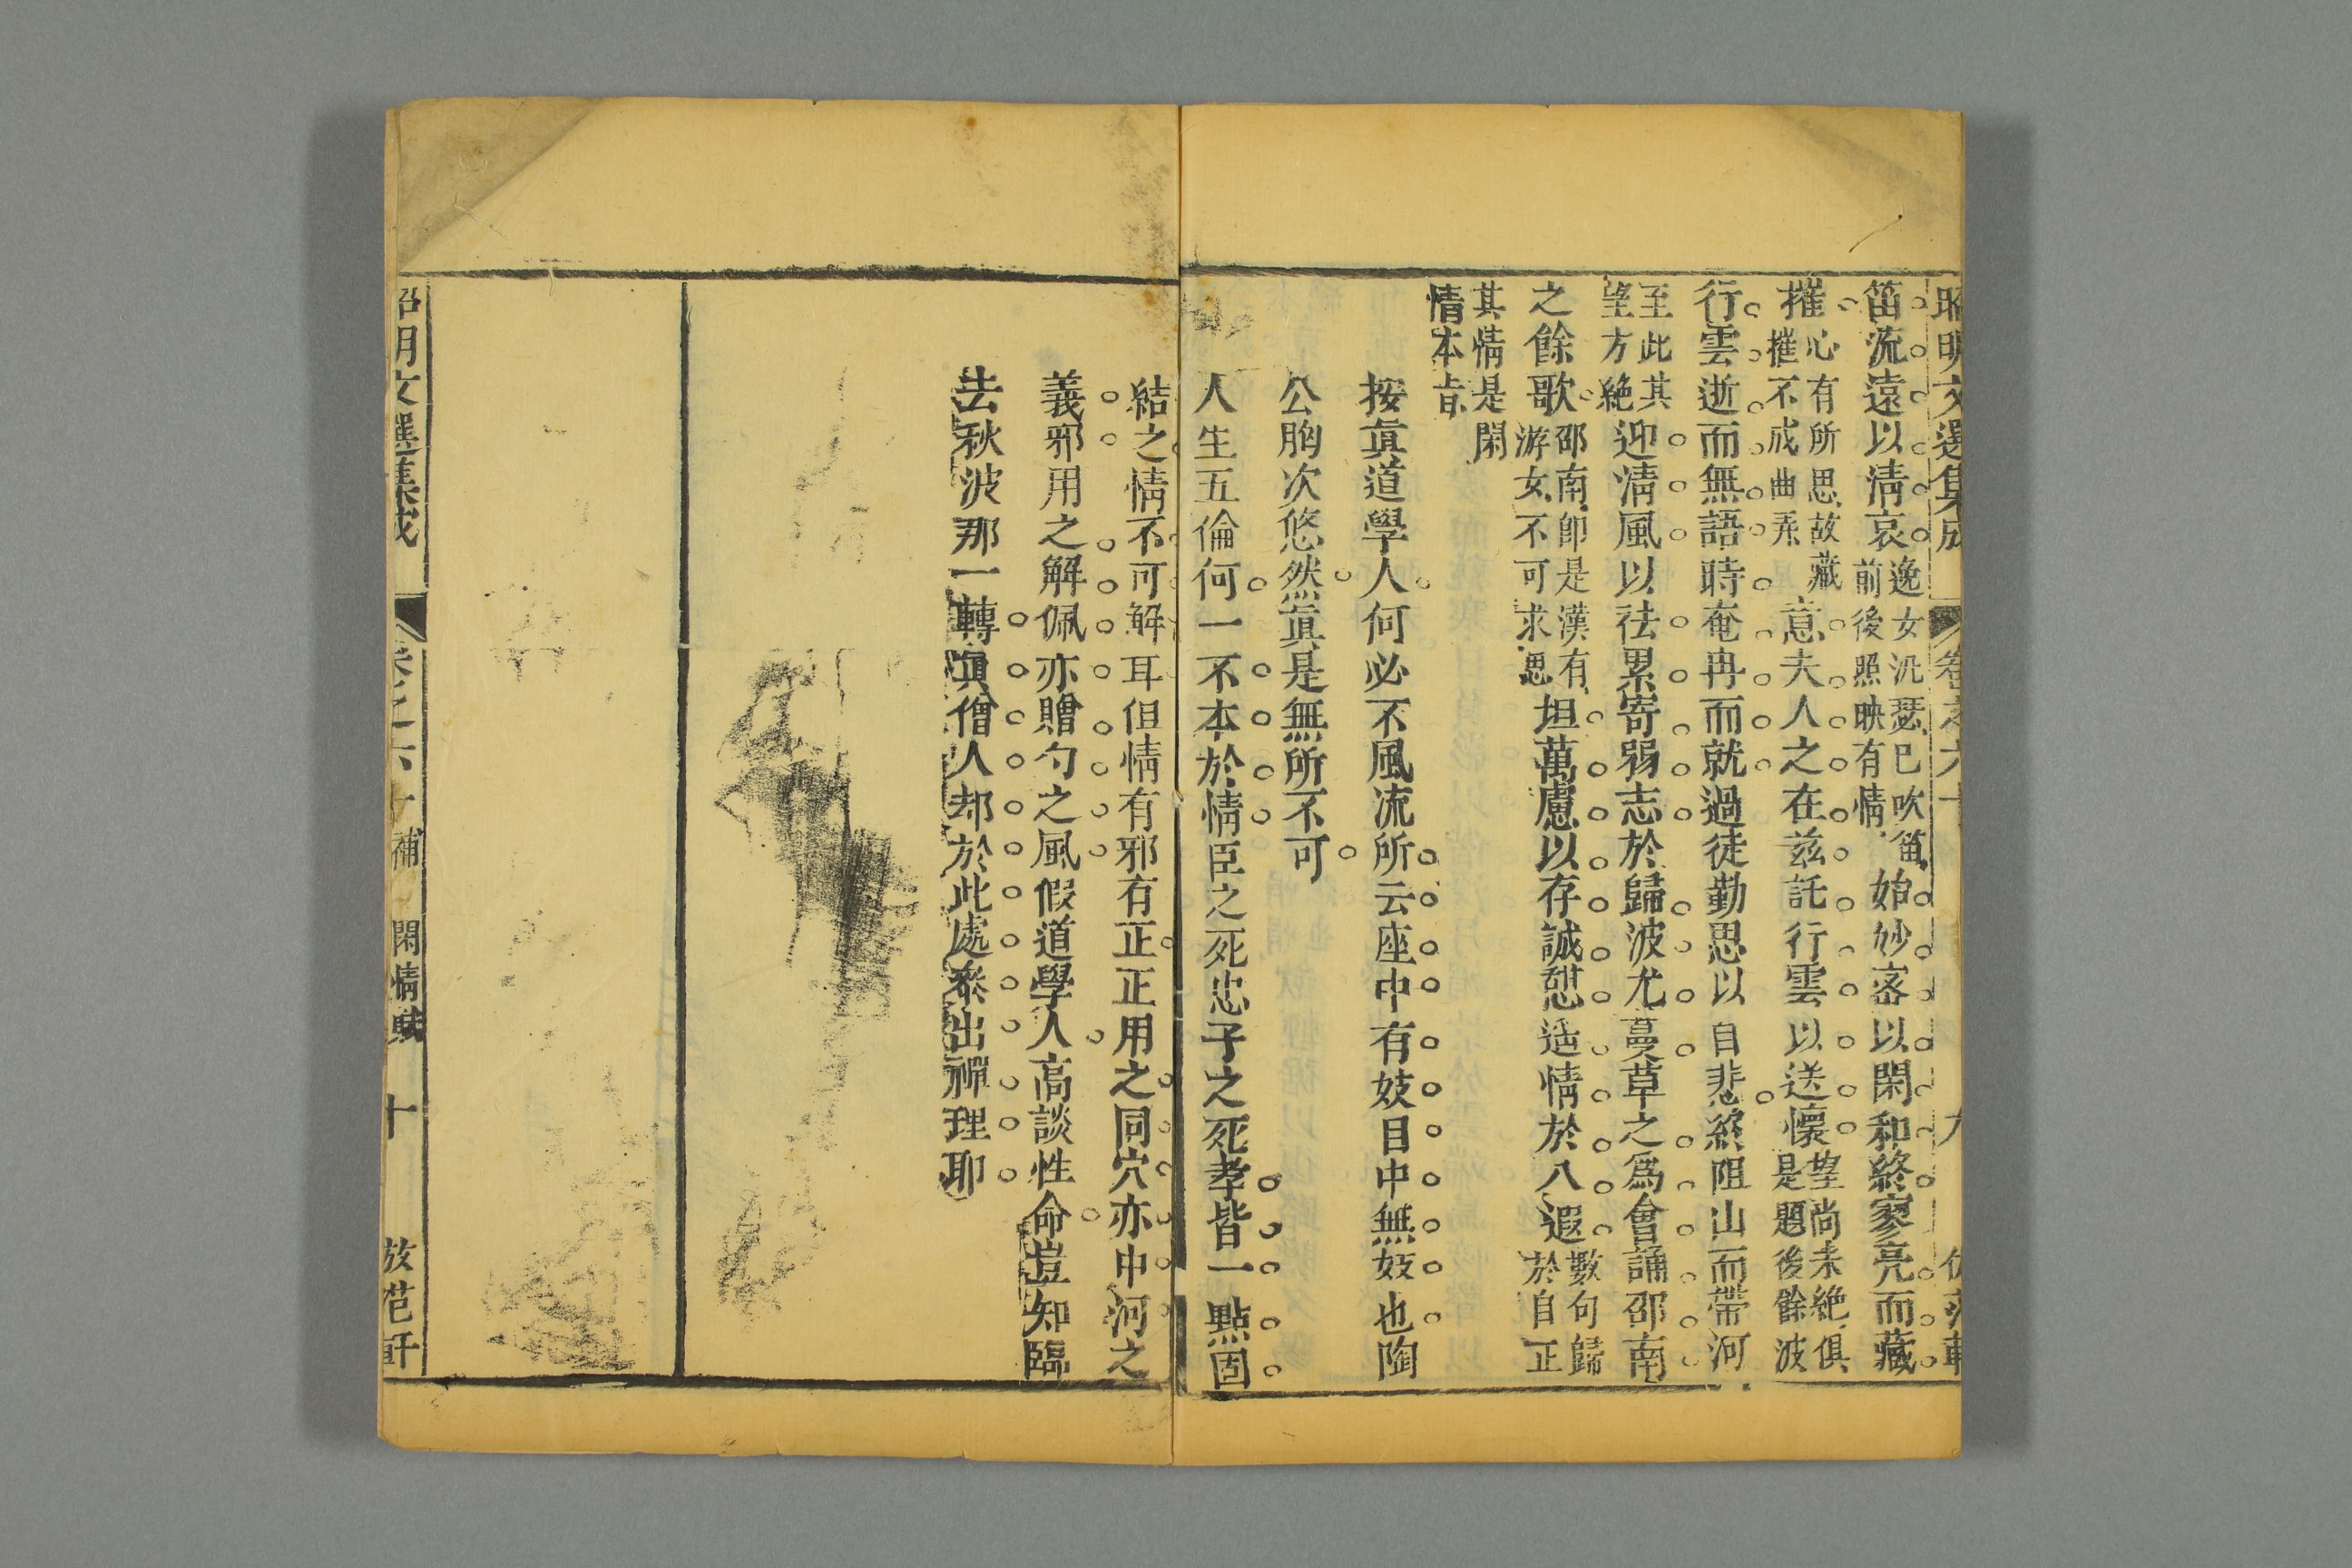 昭明文選集成 卷之六十 九
笛流遠以清哀逸女沉瑟已吹笛前後照映有情始妙宻以閑和終寥亮而藏
摧心有所思故藏摧不成曲弄意夫人之在兹託行雲以送懷望尚未絶俱是題後餘波
行雲逝而無語時奄冉而就過徒勤思以自悲終阻山而帶河
至此其望方絶迎清風以祛累寄弱志於歸波尤蔓草之爲會誦邵南
之餘歌邵南卽是漢有游女不可求思坦萬慮以存誠憇遥情於八遐數句歸於自正
其情是閑情本旨
按眞道學人何必不風流所云座中有妓目中無妓也陶
公胸次悠然眞是無所不可
人生五倫何一不本於情臣之死忠子之死孝皆一點固
結之情不可解耳但情有邪有正正用之同穴亦中河之
義邪用之解佩亦贈勺之風假道學人高談性命豈知臨
去秋波那一轉眞僧人却於此處叅出禪理耶
昭明文選集成 卷之六十 補 閑情賦 十 放范軒